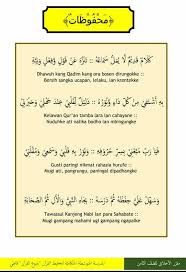 ﴿مَحْفُوظَاتٌ﴾
كَلَامٌ قَدِيْمٌ لَا يُمَلُّ سَمَاعُهُ :: تَنَزَّهَ عَنْ قَوْلٍ وَفِعْلٍ وَنِيَّةٍ
Dhawuh kang Qadim kang ora bosen dirungokke ::
Bersih sangka ucapan, lelaku, lan krenteke
بِهِ أَشْتَفِيْ مِنْ كُلِّ دَاءٍ وَنُوْرُهُ :: دَلِيْلٌ لِقَلْبِيْ عِنْدَ جَهْلِيْ وَحَيْرَتِيْ
Kelawan Qur'an tamba lara lan cahayane ::
Nuduhke ati nalika bodho lan mbingungke
فَيَا رَبِّ مَتِّعْنِيْ بِسِرِّ حُرُوْفِهِ :: وَنَوِّرْ بِهِ قَلْبِيْ وَسَمْعِيْ وَمُقْلَتِيْ
Gusti paringi nikmat rahasia hurufe ::
Nugi ati, pangrungu, paningal dipadhangke
وَسَهِّلْ عَلَيَّ حِفْظَهُ ثُمَّ دَرْسَهُ :: بِجَاهِ النَّبِيْ وَالْآلِ ثُمَّ الصَّحَابَةِ
Tawassul Kanjeng Nabi lan para Sahabate ::